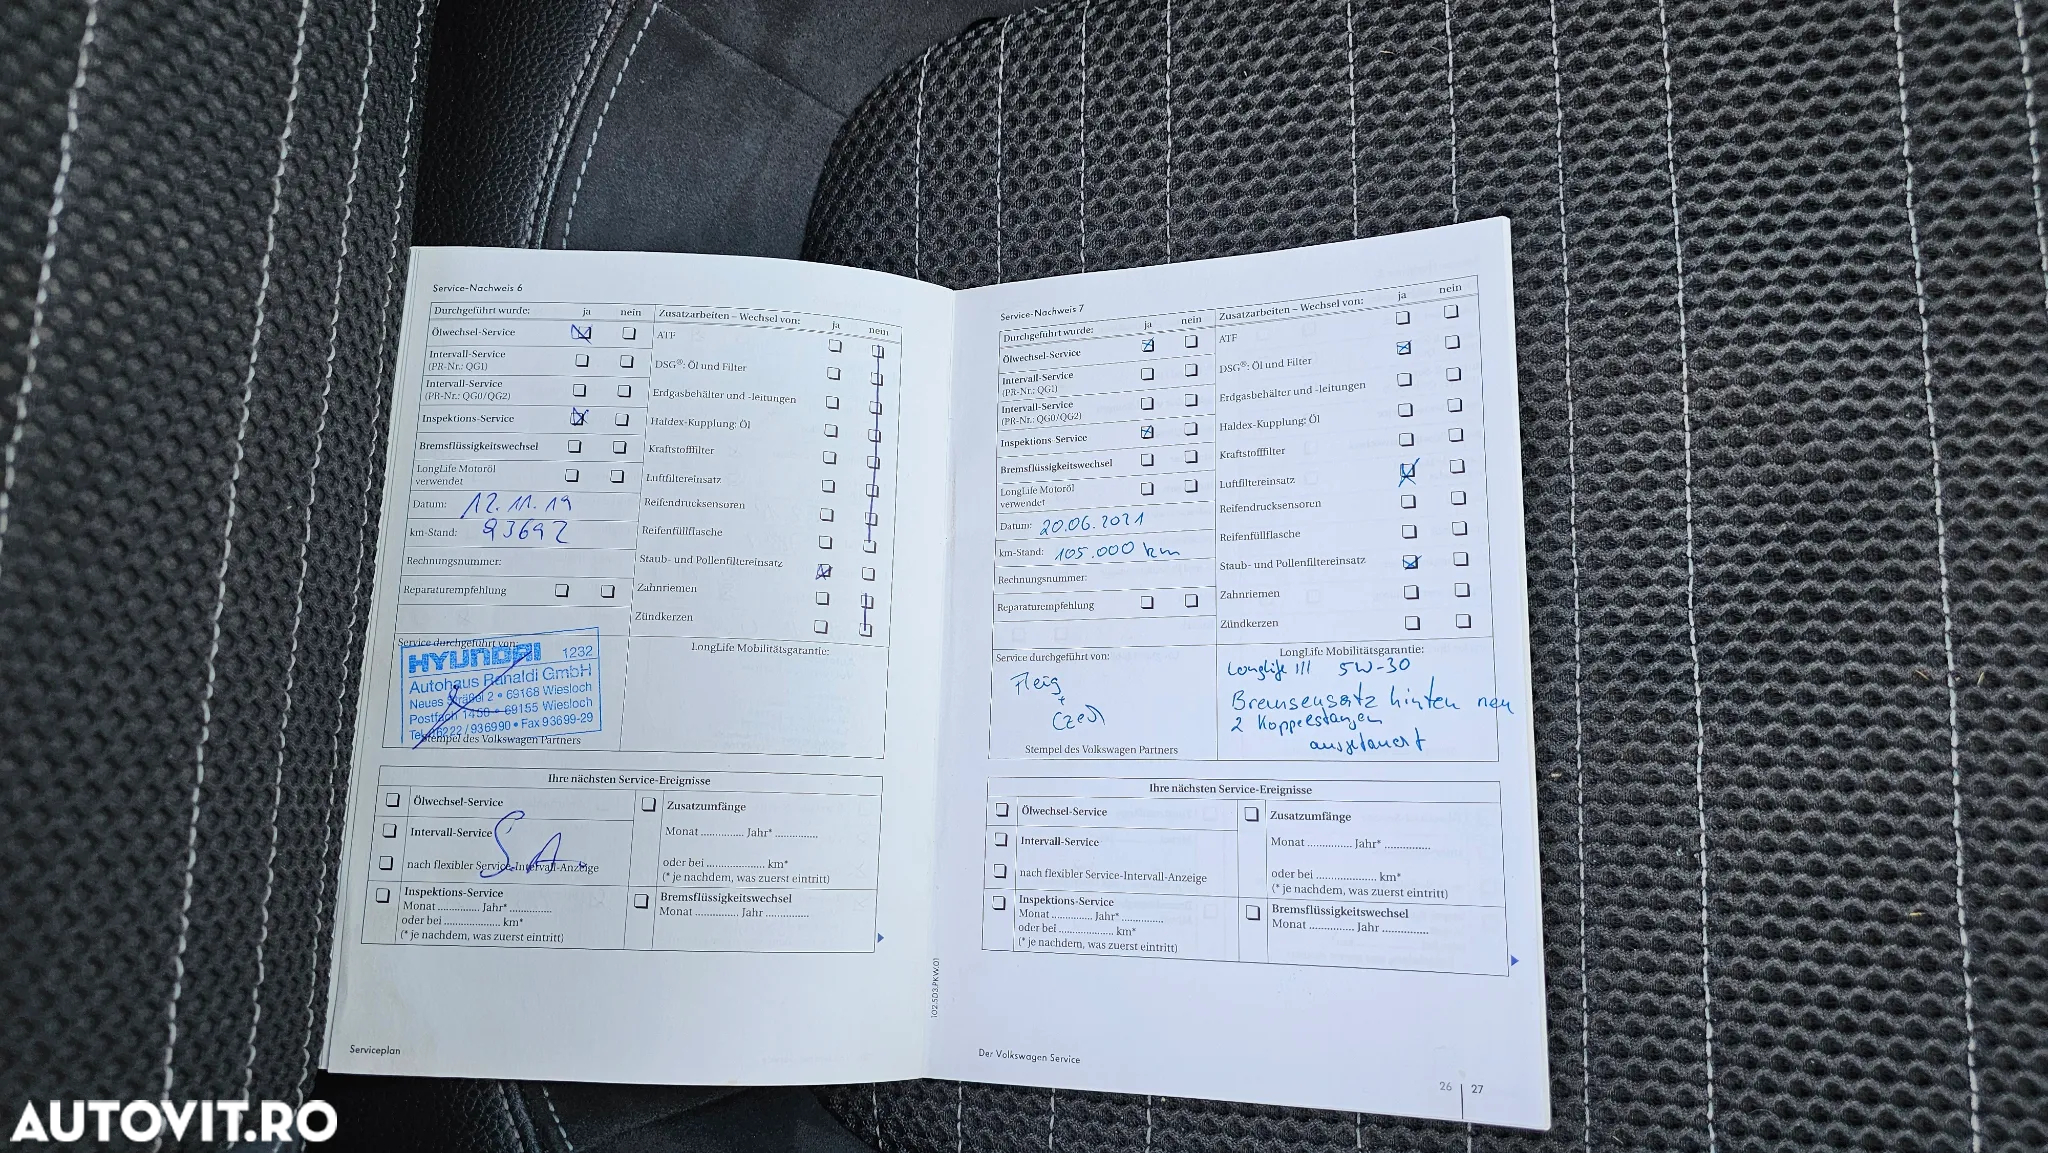 Service-Nachweis 6
Durchgeführt wurde: ja nein
Ölwechsel-Service
Intervall-Service
(PR-Nr.: QG1)
Intervall-Service
(PR-Nr.: QG0/QG2)
Inspektions-Service
Bremsflüssigkeitswechsel
LongLife Motoröl
verwendet
Datum: 12.11.19
km-Stand: 93692
Rechnungsnummer:
Reparaturempfehlung
Service durchgeführt von:
HYUNDAI 1232
Autohaus Ranaldi GmbH
Neues Sträßel 2 • 69168 Wiesloch
Postfach 1450 • 69155 Wiesloch
Tel. 06222 / 936990 • Fax 93699-29
Stempel des Volkswagen Partners
Zusatzarbeiten – Wechsel von: ja nein
ATF
DSG®: Öl und Filter
Erdgasbehälter und -leitungen
Haldex-Kupplung: Öl
Kraftstofffilter
Luftfiltereinsatz
Reifendrucksensoren
Reifenfüllflasche
Staub- und Pollenfiltereinsatz
Zahnriemen
Zündkerzen
LongLife Mobilitätsgarantie:
Ihre nächsten Service-Ereignisse
Ölwechsel-Service
Intervall-Service
nach flexibler Service-Intervall-Anzeige
Inspektions-Service
Monat .............. Jahr* ..............
oder bei .................... km*
(* je nachdem, was zuerst eintritt)
Zusatzumfänge
Monat .............. Jahr* ..............
oder bei .................... km*
(* je nachdem, was zuerst eintritt)
Bremsflüssigkeitswechsel
Monat .............. Jahr ..............
Serviceplan
102.5D3.PKW.01
Service-Nachweis 7
Durchgeführt wurde: ja nein
Ölwechsel-Service
Intervall-Service
(PR-Nr.: QG1)
Intervall-Service
(PR-Nr.: QG0/QG2)
Inspektions-Service
Bremsflüssigkeitswechsel
LongLife Motoröl
verwendet
Datum: 20.06.2021
km-Stand: 105.000 km
Rechnungsnummer:
Reparaturempfehlung
Service durchgeführt von:
Stempel des Volkswagen Partners
Zusatzarbeiten – Wechsel von: ja nein
ATF
DSG®: Öl und Filter
Erdgasbehälter und -leitungen
Haldex-Kupplung: Öl
Kraftstofffilter
Luftfiltereinsatz
Reifendrucksensoren
Reifenfüllflasche
Staub- und Pollenfiltereinsatz
Zahnriemen
Zündkerzen
LongLife Mobilitätsgarantie:
Longlife III 5W-30
Bremsensatz hinten neu
2 Koppelstangen
ausgetauscht
Ihre nächsten Service-Ereignisse
Ölwechsel-Service
Intervall-Service
nach flexibler Service-Intervall-Anzeige
Inspektions-Service
Monat .............. Jahr* ..............
oder bei .................... km*
(* je nachdem, was zuerst eintritt)
Zusatzumfänge
Monat .............. Jahr* ..............
oder bei .................... km*
(* je nachdem, was zuerst eintritt)
Bremsflüssigkeitswechsel
Monat .............. Jahr ..............
Der Volkswagen Service
26 | 27
AUTOVIT.RO